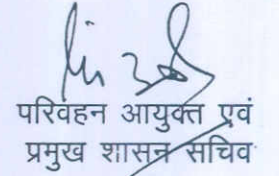 परिवहन आयुक्त एवं
प्रमुख शासन सचिव